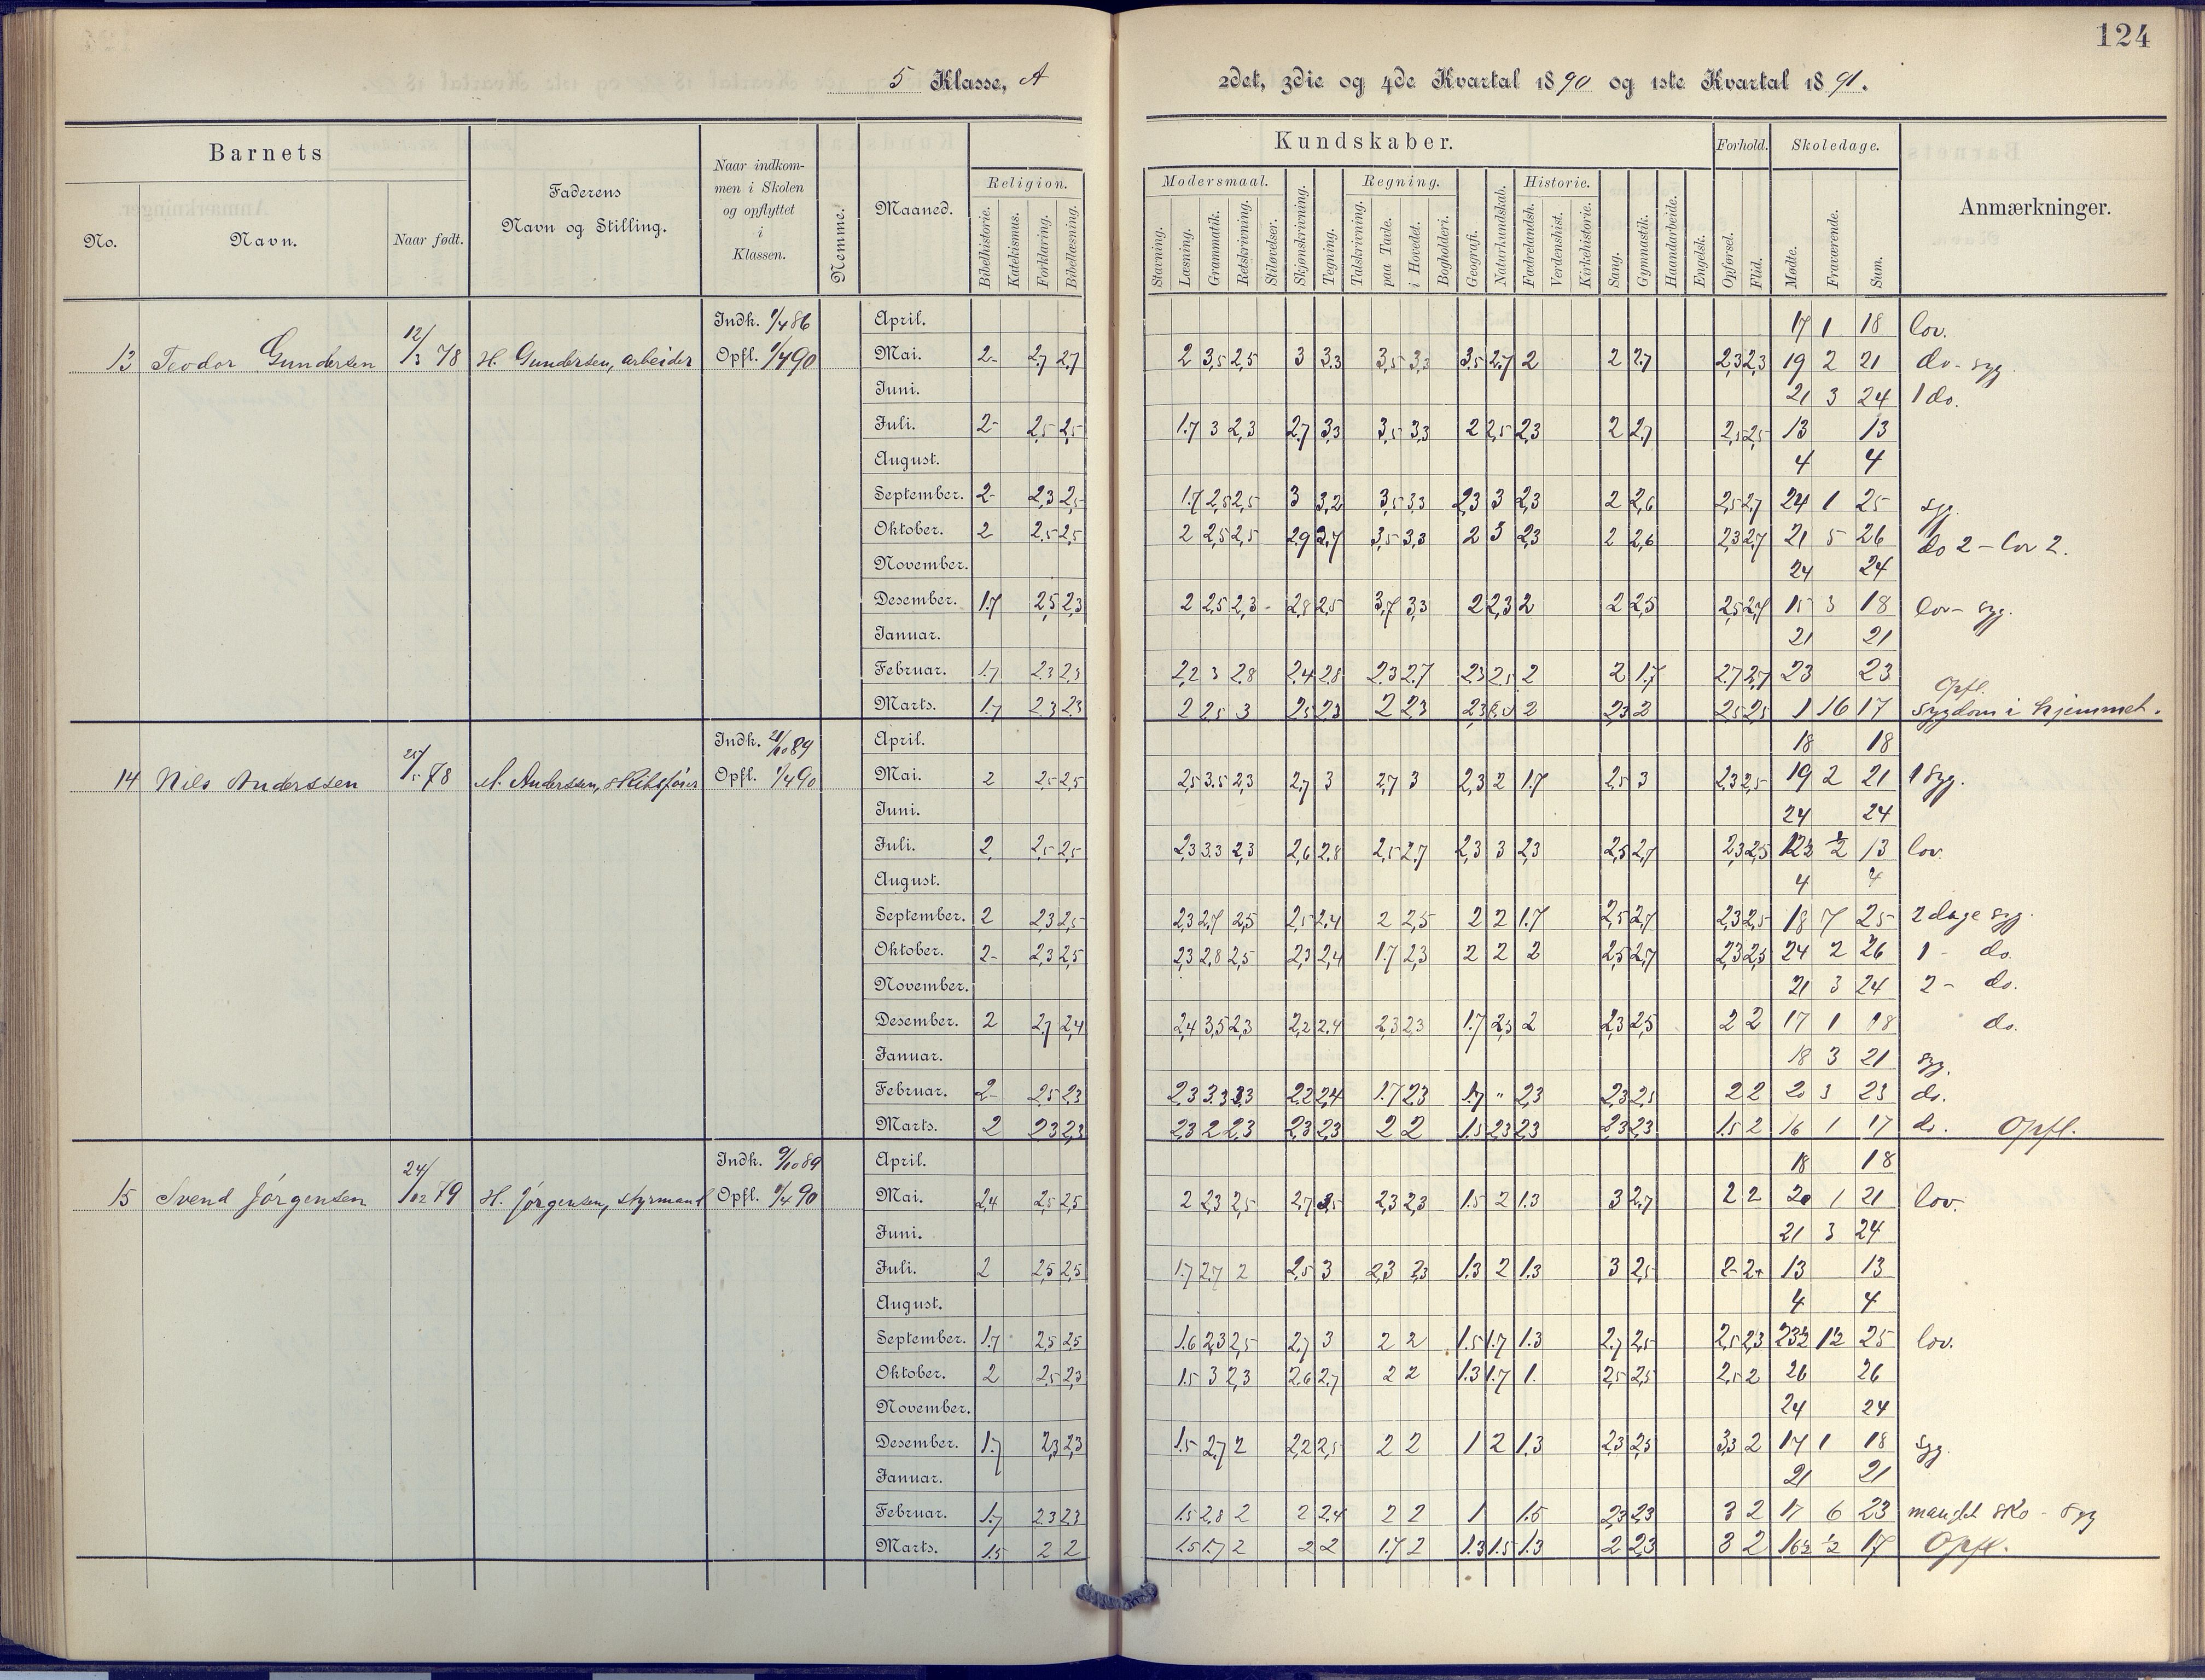 124
5 Klasse, A
2det, 3die og 4de Kvartal 1890 og 1ste Kvartal 1891.
Barnets
No.
Navn.
Naar født.
Faderens
Navn og Stilling.
Naar indkom-
men i Skolen
og opflyttet
i
Klassen.
Nemme.
Maaned.
Religion.
Bibelhistorie.
Katekismus.
Forklaring.
Bibellæsning.
Kundskaber.
Modersmaal.
Stavning.
Læsning.
Grammatik.
Retskrivning.
Stiløvelser.
Skjønskrivning.
Tegning.
Regning.
Talskrivning.
paa Tavle.
i Hovedet.
Bogholderi.
Geografi.
Naturkundskab.
Historie.
Fædrelandsh.
Verdenshist.
Kirkehistorie.
Sang.
Gymnastik.
Haandarbeide.
Engelsk.
Forhold.
Opførsel.
Flid.
Skoledage.
Mødte.
Fraværende.
Sum.
Anmærkninger.
Indk. 1/4 86 April. 17 1 18 lov.
13 Teodor Gundersen 12/3 78 H. Gundersen, arbeider Opfl. 1/4 90 Mai. 2- 2,7 2,7 2 3,5 2,5 3 3,3 3,5 3,3 3,5 2,7 2 2 2,7 2,3 2,3 19 2 21 do - syg.
Juni. 21 3 24 1 do.
Juli. 2- 2,5 2,5 1.7 3 2,3 2,7 3,3 3,5 3,3 2 2,5 2,3 2 2,7 2,5 2,5 13 13
August. 4 4
September. 2- 2,3 2,5 1.7 2,5 2,5 3 3,2 3,5 3,3 2,3 3 2,3 2 2,6 2,5 2,7 24 1 25 syg.
Oktober. 2 2,5 2,5 2 2,5 2,5 2,9 2,7 3,5 3,3 2 3 2,3 2 2,6 2,3 2,7 21 5 26 do 2 - lov 2.
November. 24 24
Desember. 1.7 2,5 2,3 2 2,5 2,3 - 2,8 2,5 3,7 3,3 2 2,3 2 2 2,5 2,5 2,7 15 3 18 lov - syg.
Januar. 21 21
Februar. 1.7 2,3 2,3 2,2 3 2,8 2,4 2,8 2,3 2,7 2,3 2,5 2 2 1.7 2,7 2,7 23 23
Marts. 1.7 2,3 2,3 2 2,5 3 2,5 2,3 2 2,3 2,3 2 2,3 2 2,5 2,5 1 16 17 Opfl. Sygdom i hjemmet.
Indk. 21/10 89 April. 18 18
14 Nils Anderssen 25/5 78 A. Anderssen, skibsfører Opfl. 1/4 90 Mai. 2 2,5 2,5 2,5 3,5 2,3 2,7 3 2,7 3 2,3 2 1.7 2,5 3 2,3 2,5 19 2 21 1 syg.
Juni. 24 24
Juli. 2. 2,5 2,5 2,3 3,3 2,3 2,6 2,8 2,5 2,7 2,3 3 2,3 2,5 2,7 2,3 2,5 12½ ½ 13 lov.
August. 4 4
September. 2 2,3 2,5 2,3 2,7 2,5 2,5 2,4 2 2,5 2 2 1.7 2,5 2,7 2,3 2,5 18 7 25 2 dage syg.
Oktober. 2- 2,3 2,5 2,3 2,8 2,5 2,3 2,4 1.7 2,3 2 2 2 2,5 2,7 2,3 2,5 24 2 26 1 - do.
November. 21 3 24 2 - do.
Desember. 2 2,7 2,4 2,4 3,5 2,3 2,2 2,4 2,3 2,3 1.7 2,3 2 2,3 2,5 2 2 17 1 18 do.
Januar. 18 3 21 syg.
Februar. 2- 2,5 2,3 2,3 3,3 2,3 2,2 2,4 1.7 2,3 1.7 " 2,3 2,3 2,5 2 2 20 3 23 do.
Marts. 2 2,3 2,3 2,3 2 2,3 2,3 2,3 2 2 1.5 2,3 2,3 2,3 2,3 1.5 2 16 1 17 do. Opfl.
Indk. 9/10 89 April. 18 18
15 Svend Jørgensen 24/12 79 H. Jørgensen, styrmand Opfl. 1/4 90 Mai. 2,4 2,5 2,5 2 2,3 2,5 2,7 2,5 2,3 2,3 1.5 2 1.3 3 2,7 2 2 20 1 21 lov.
Juni. 21 3 24
Juli. 2 2,5 2,5 1.7 2,7 2 2,5 3 2,3 2,3 1.3 2 1.3 3 2,5 2- 2+ 13 13
August. 4 4
September. 1.7 2,5 2,5 1.6 2,3 2,5 2,7 3 2 2 1.5 1.7 1.3 2,7 2,5 2,5 2,3 23½ 1½ 25 lov.
Oktober. 2 2,5 2,3 1.5 3 2,3 2,6 2,7 2 2 1.3 1.7 1. 2,5 2,5 2,5 2 26 26
November. 24 24
Desember. 1.7 2,3 2,3 1.5 2,7 2 2,2 2,5 2 2 1 2 1.3 2,3 2,5 3,3 2 17 1 18 syg.
Januar. 21 21
Februar. 1.7 2,3 2,3 1.5 2,8 2 2 2,4 2 2 1 1.5 2,3 2,3 3 2 17 6 23 manglet sko - syg
Marts. 1.5 2 2 1.5 1.7 2 2 2 1.7 2 1.3 1.5 1.3 2 2,3 3 2 16½ ½ 17 Opfl.